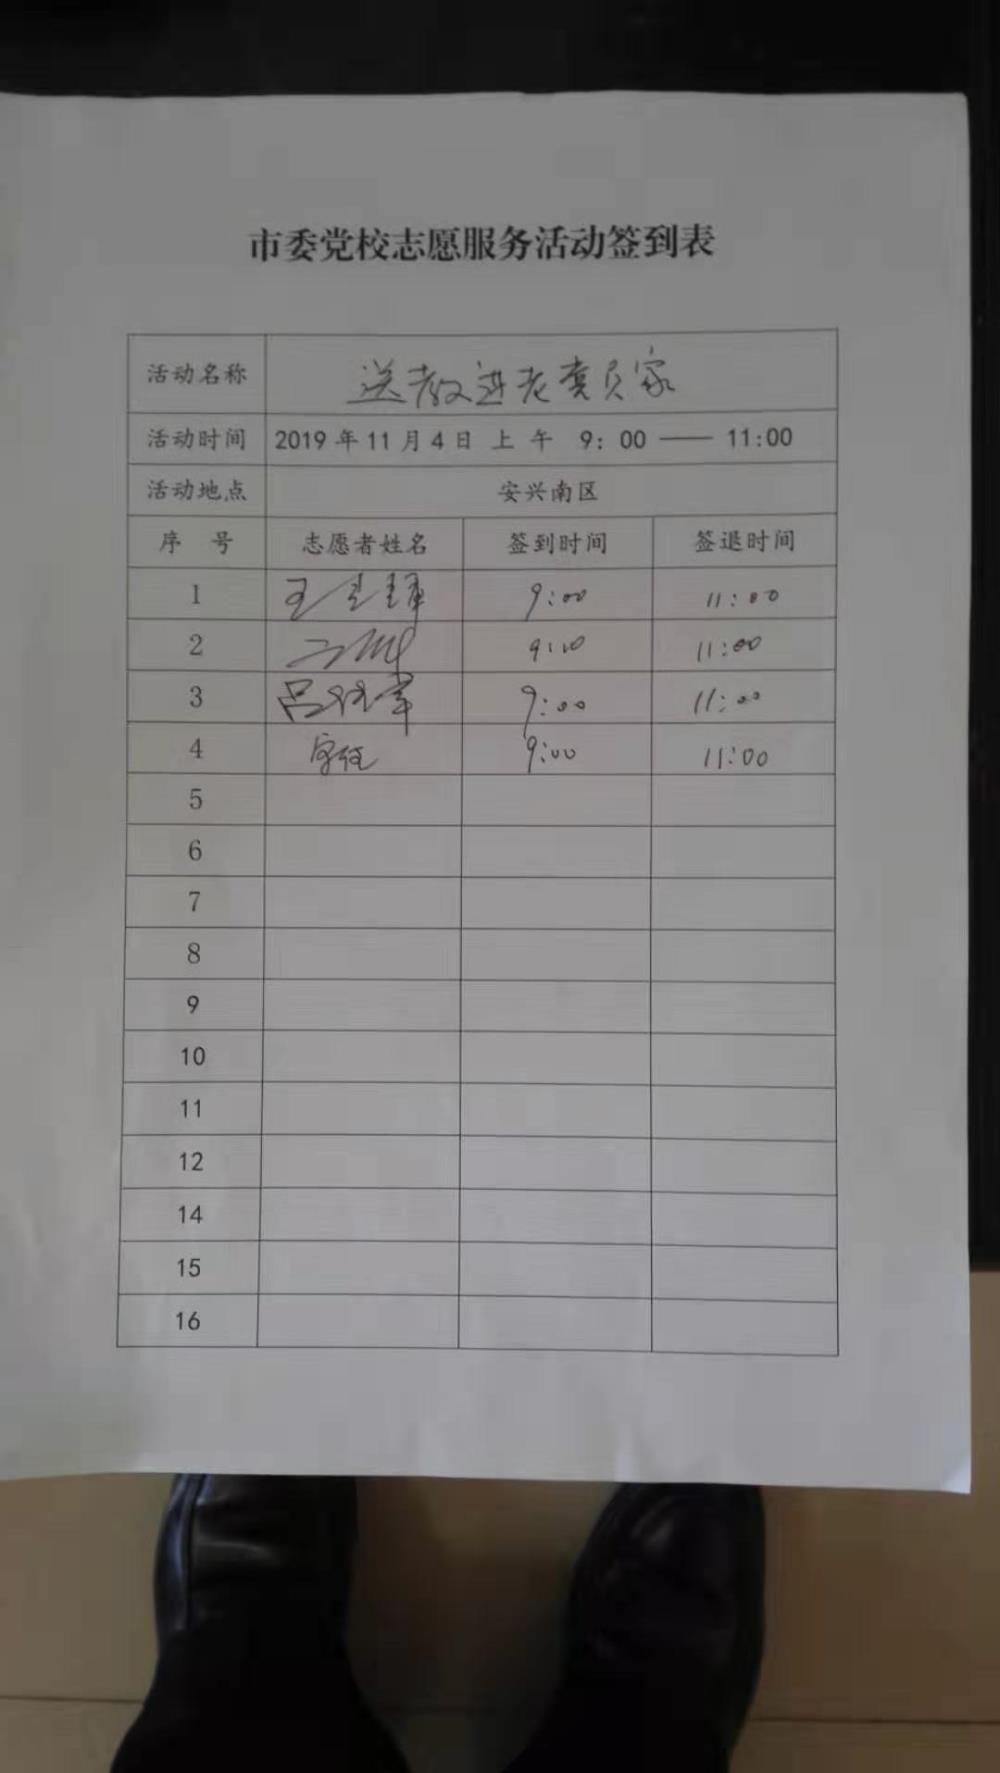 市委党校志愿服务活动签到表
活动名称 送教进老党员家
活动时间 2019年11月4日 上午 9:00 —— 11:00
活动地点 安兴南区
序 号 志愿者姓名 签到时间 签退时间
1 王 9:00 11:00
2 9:10 11:00
3 吕 9:00 11:00
4 9:00 11:00
5
6
7
8
9
10
11
12
14
15
16